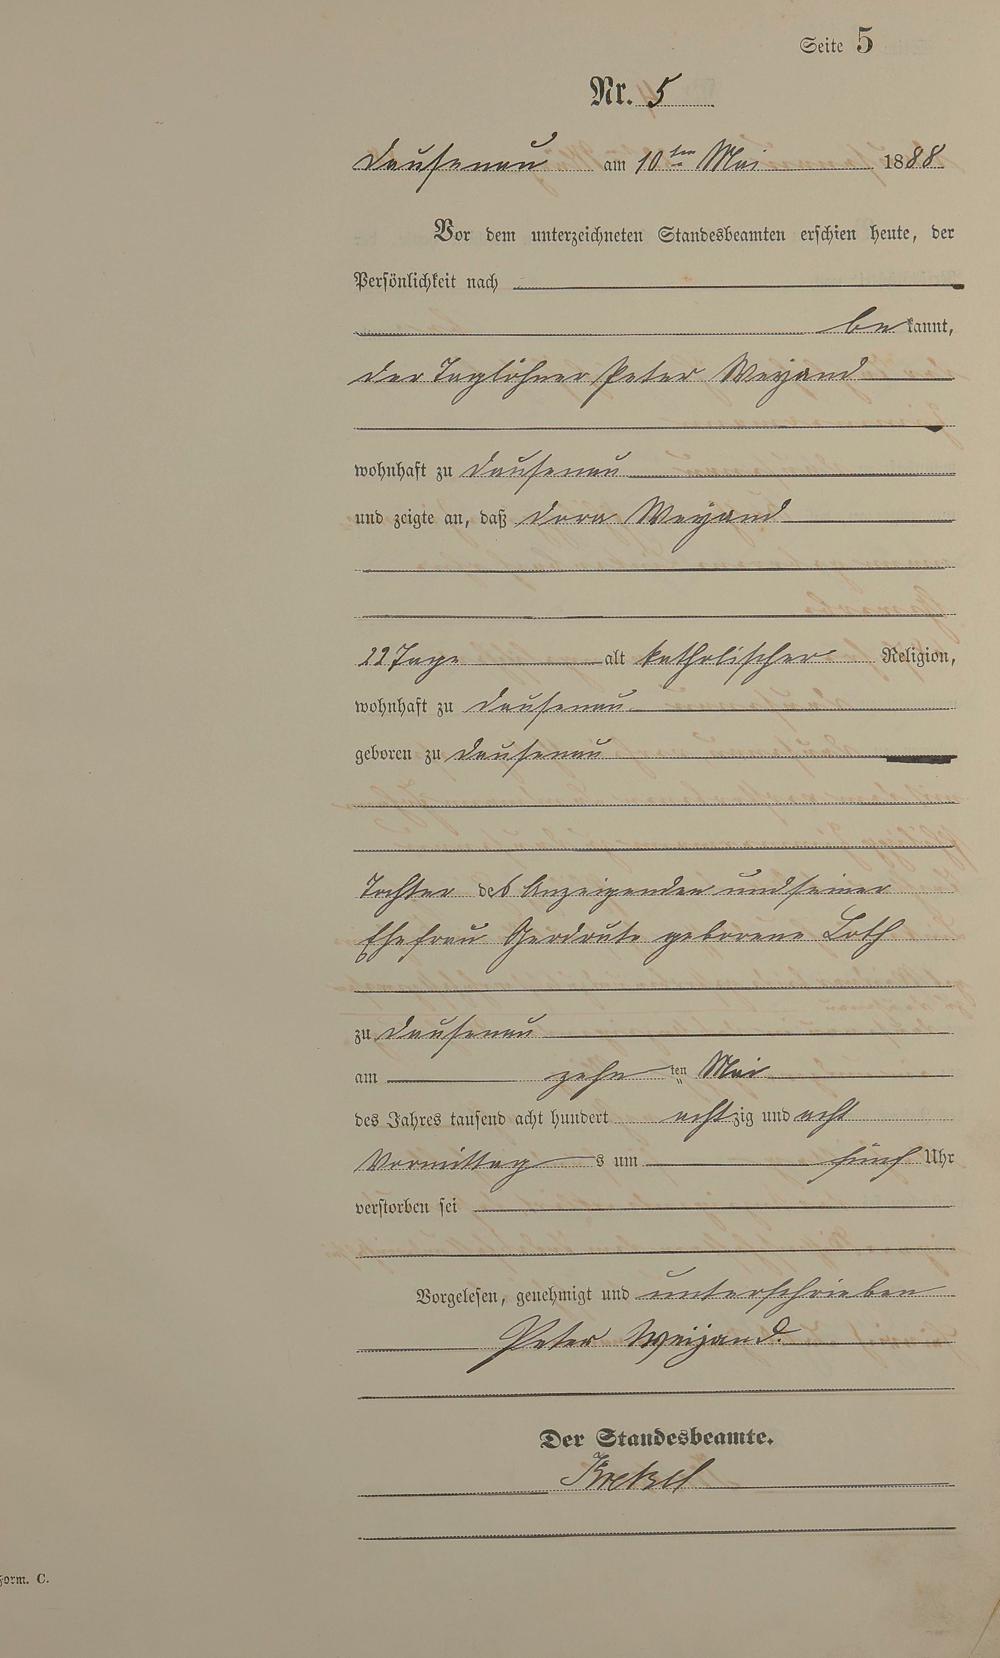 Seite 5
Nr. 5
Dausenau am 10ten Mai 1888
Vor dem unterzeichneten Standesbeamten erschien heute, der
Persönlichkeit nach
bekannt,
der Taglöhner Peter Weyand
wohnhaft zu Dausenau
und zeigte an, daß Dora Weyand
22 Tage alt katholischer Religion,
wohnhaft zu Dausenau
geboren zu Dausenau
Tochter des Anzeigenden und seiner
Ehefrau Gerdrute geborene Loth
zu Dausenau
am zehnten Mai
des Jahres tausend acht hundert achtzig und acht
Vormittags um fünf Uhr
verstorben sei
Vorgelesen, genehmigt und unterschrieben
Peter Weijand.
Der Standesbeamte.
Form. C.